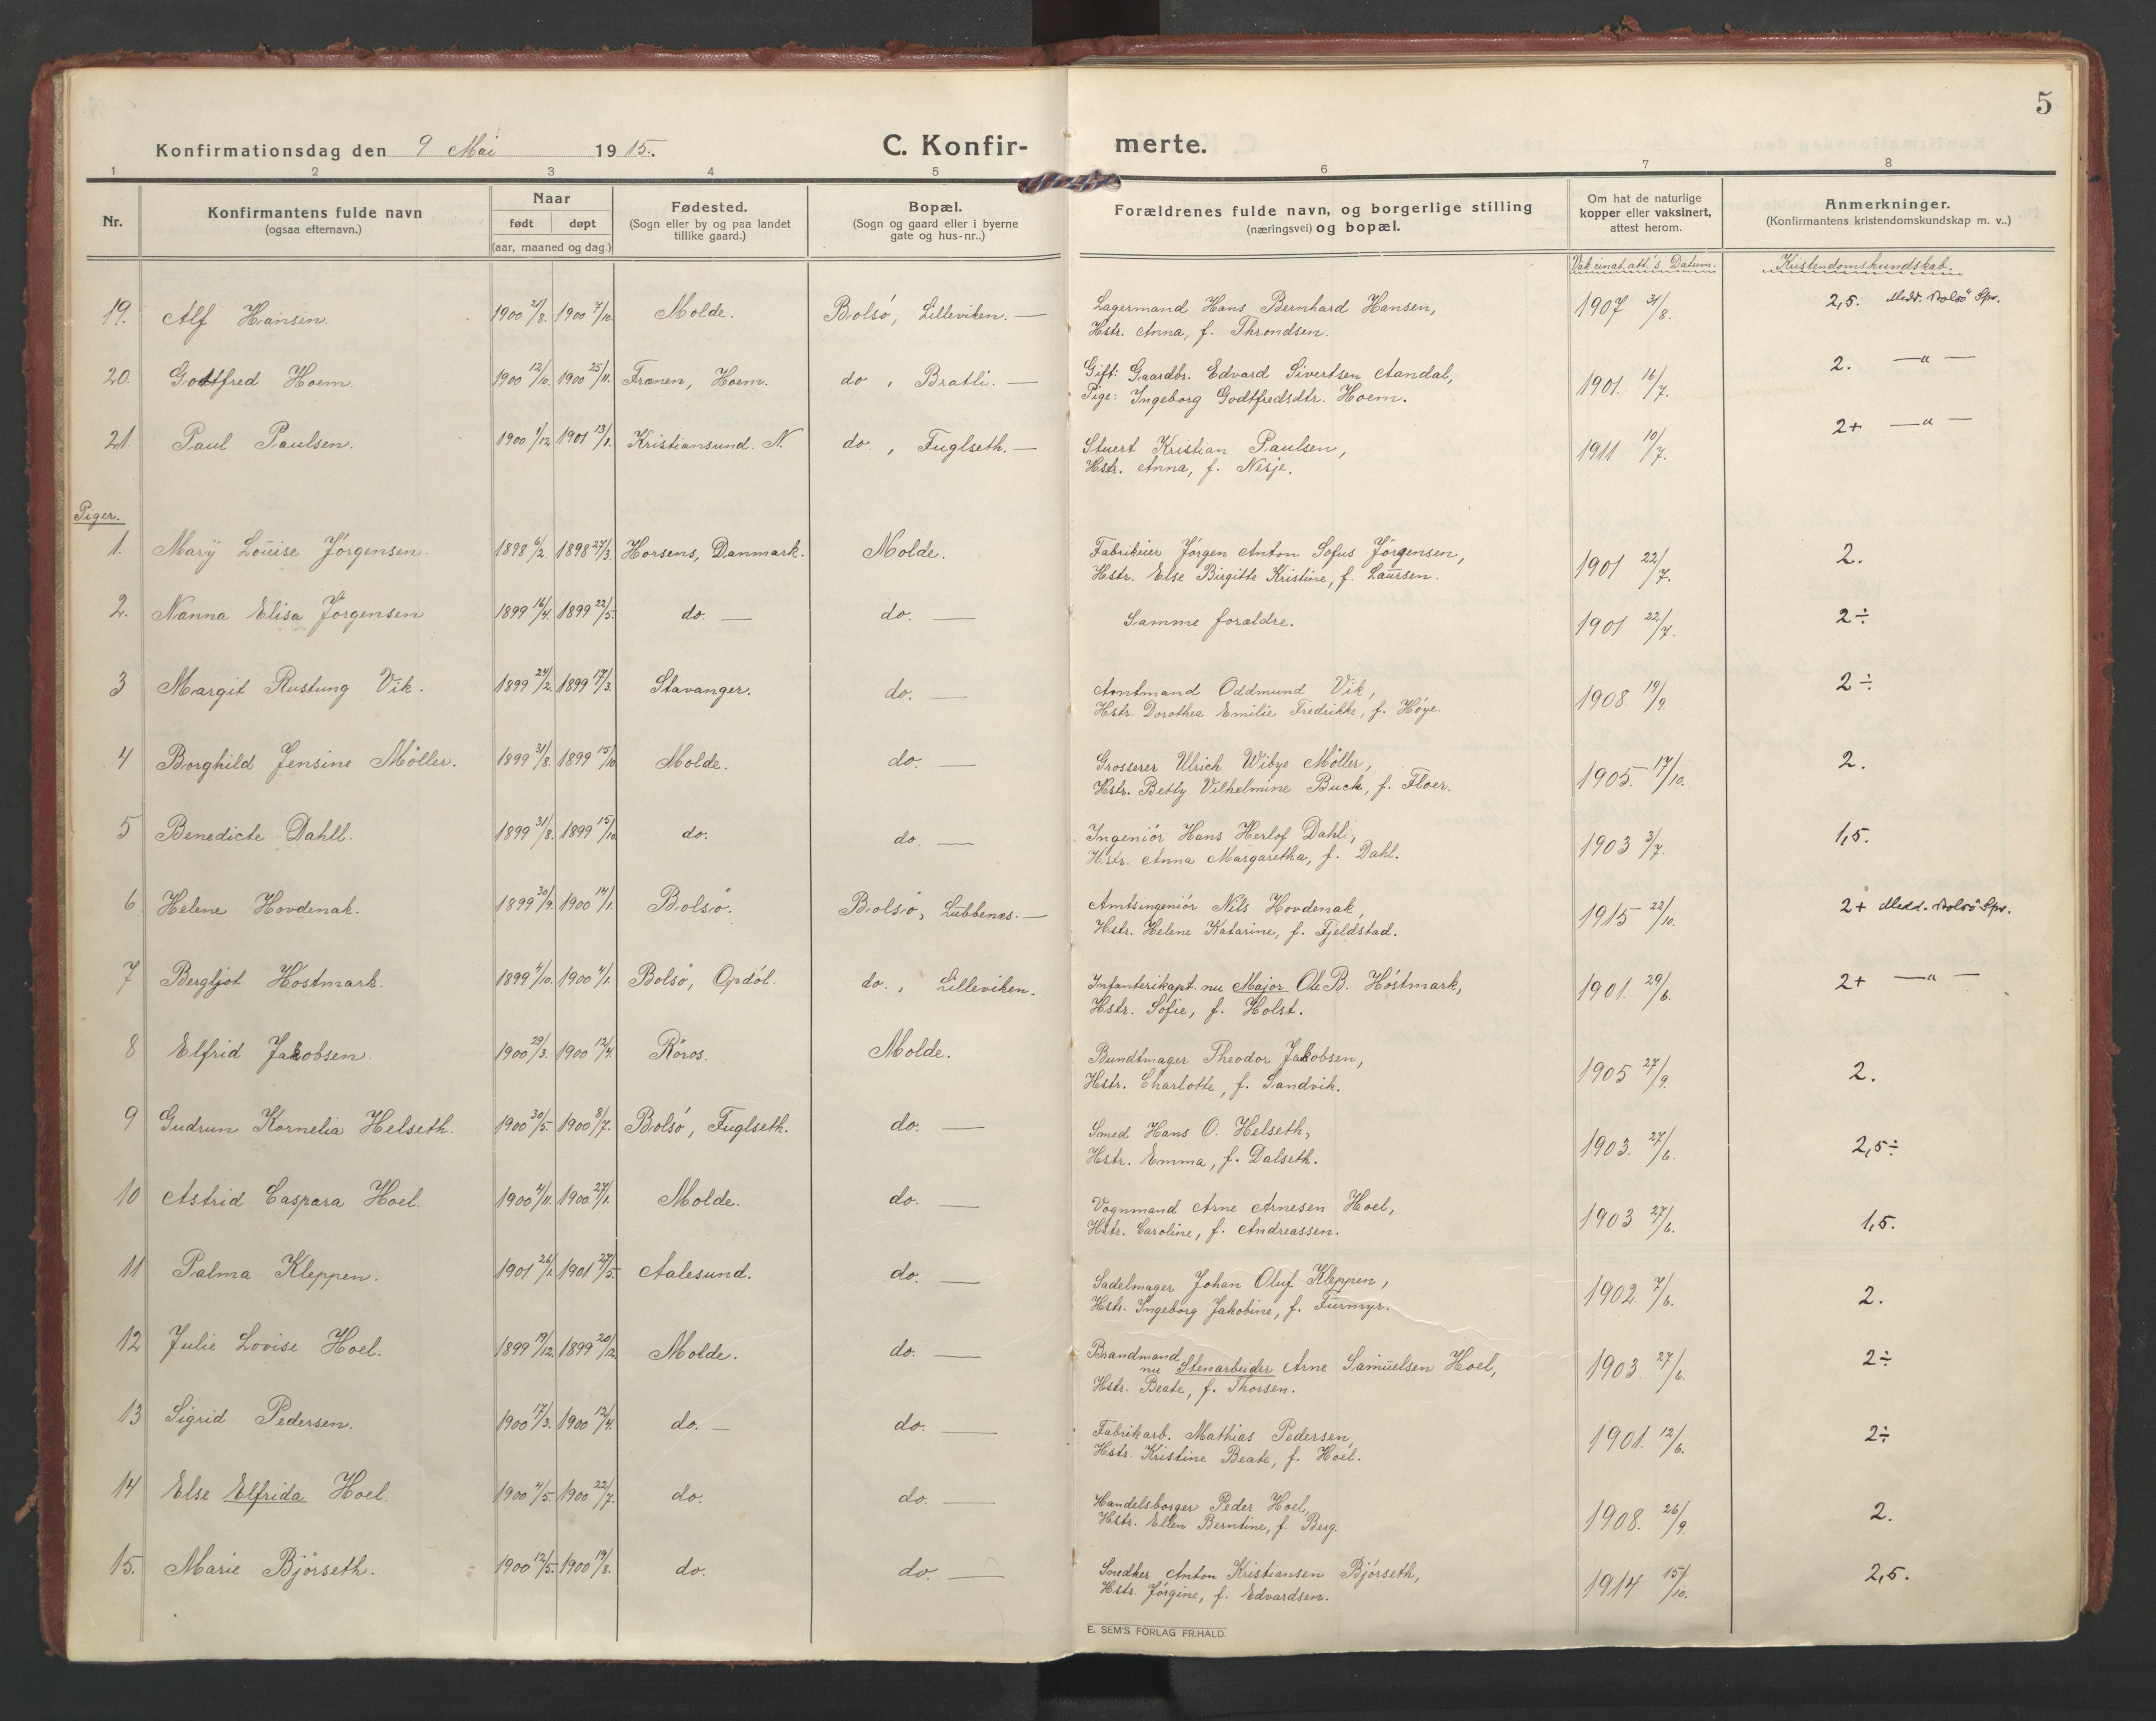 5
Konfirmationsdag den 9 Mai 1915. C. Konfir- merte.
1 2 3 4 5 6 7 8
Nr.
Konfirmantens fulde navn
(ogsaa efternavn.)
Naar
født døpt
(aar, maaned og dag.)
Fødested.
(Sogn eller by og paa landet
tillike gaard.)
Bopæl.
(Sogn og gaard eller i byerne
gate og hus-nr..)
Forældrenes fulde navn, og borgerlige stilling
(næringsvei) og bopæl.
Om hat de naturlige
kopper eller vaksinert,
attest herom.
Anmerkninger.
(Konfirmantens kristendomskundskap m. v..)
Vakcinat.att's Datum. Kristendomskundskab.
19. Alf Hansen. 1900 21/8. 1900 7/10 Molde. Bolsö, Lilleviken. — Lagermand Hans Bernhard Hansen, 1907 31/8. 2,5. Medd. Bolsö Spr.
Hstr. Anna, f. Throndsen.
20. Godtfred Hoem. 1900 12/10. 1900 25/11. Frænen, Hoem. do, Bratli. — Gift: Gaardbr. Edvard Sivertsen Aandal, 1901. 16/7. 2. —"—
Pige: Ingeborg Godtfredsdtr. Hoem.
21. Paul Paulsen. 1900 1/12 1901 13/1. Kristiansund. N. do., Fuglseth. — Stuert Kristian Paulsen, 1911 10/7. 2+ —"—
Hstr. Anna, f. Nesje.
Piger.
1. Mary Louise Jörgensen. 1898 6/2. 1898 27/3. Horsens, Danmark. Molde. Fabrikeier Jörgen Anton Sofus Jörgensen, 1901 22/7. 2.
Hstr. Else Birgitte Kristine, f. Laursen.
2. Nanna Elisa Jörgensen 1899 16/4. 1899 22/5. do. — do. — Samme forældre. 1901 22/7. 2÷
3 Margit Rustung Vik. 1899 24/2. 1899 17/3. Stavanger. do. — Amtmand Oddmund Vik, 1908. 19/9. 2÷
Hstr. Dorothea Emilie Fredrikke, f. Höye.
4 Borghild Jensine Möller. 1899 31/8. 1899 15/10 Molde. do. — Grosserer Ulrich Wibye Möller, 1905. 17/10. 2.
Hstr. Betty Vilhelmine Buck, f. Floer.
5 Benedicte Dahll. 1899 31/8. 1899 15/10 do. do. — Ingeniör Hans Herlof Dahl, 1903 3/7. 1,5.
Hstr. Anna Margaretha, f. Dahl.
6 Helene Hovdenak. 1899 30/9. 1900 14/1. Bolsö. Bolsö, Lubbenæs. — Amtsingeniör Nils Hovdenak, 1915 22/10. 2+ Medd. Bolsö Spr.
Hstr. Helene Katarine, f. Fjeldstad.
7 Bergljot Höstmark. 1899 4/10. 1900 4/1. Bolsö, Opdöl. do., Lilleviken. Infanterikapt. nu Major Ole B. Höstmark, 1901. 29/6. 2+ —"—
Hstr. Sofie, f. Holst.
8 Elfrid Jakobsen. 1900 29/3. 1900 12/4. Röros. Molde. Bundtmager Theodor Jakobsen, 1905 27/9. 2.
Hstr. Charlotte, f. Sandvik.
9 Gudrun Kornelia Helseth. 1900 30/5. 1900 8/7. Bolsö, Fuglseth. do. — Smed Hans O. Helseth, 1903. 27/6. 2,5÷
Hstr. Emma, f. Dalseth.
10 Astrid Caspara Hoel. 1900 4/11. 1900 27/1. Molde. do. — Vognmand Arne Arnesen Hoel, 1903 27/6. 1,5.
Hstr. Caroline, f. Andreassen.
11 Palma Kleppen. 1901 26/1. 1901 27/5. Aalesund. do. — Sadelmager Johan Oluf Kleppen, 1902. 7/6. 2.
Hstr. Ingeborg Jakobine, f. Furmyr.
12 Julie Lovise Hoel. 1899 19/12. 1899 20/12 Molde. do. — Brandmand
nu Stenarbeider Arne Samuelsen Hoel, 1903 27/6. 2÷
Hstr. Beate, f. Thorsen.
13 Sigrid Pedersen. 1900 17/3. 1900 12/4. do. — do. — Fabrikarb. Mathias Pedersen, 1901. 12/6. 2÷
Hstr. Kristine Beate, f. Hoel.
14 Else Elfrida Hoel. 1900 4/5. 1900 22/7. do. do. — Handelsborger Peder Hoel, 1908. 26/9. 2.
Hstr. Ellen Berntine, f. Berg.
15. Marie Björseth. 1900 12/5. 1900 19/8. do. do. — Snedker Anton Kristiansen Björseth, 1914 15/10. 2,5.
Hstr. Jörgine, f. Edvardsen.
E. SEM'S FORLAG FR.HALD.